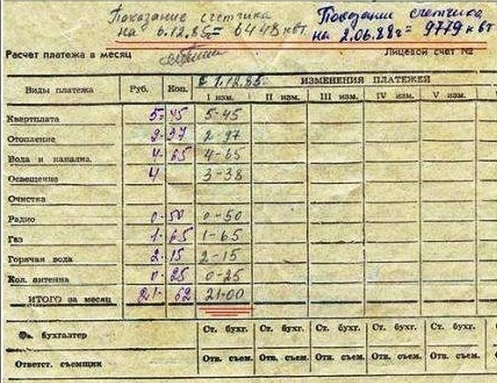 Показание счетчика
на 6.12.85г= 6448 квт.
Показание счетчика
на 2.06.88г= 9779 квт
Расчет платежа в месяц Лицевой счет №
Виды платежа Руб. Коп. с 1.12.85г ИЗМЕНЕНИЯ ПЛАТЕЖЕЙ
I изм. II изм. III изм. IV изм. V изм.
Квартплата 5-45 5-45
Отопление 2-97 2-97
Вода и канализ. 4-65 4-65
Освещение 4 3-38
Очистка
Радио 0-50 0-50
Газ 1-65 1-65
Горячая вода 2-15 2-15
Кол. антенна 0-25 0-25
ИТОГО за месяц 21-62 21-00
Гл. бухгалтер Ст. бухг. Ст. бухг. Ст. бухг. Ст. бухг. Ст. бухг.
Ответст. съемщик Отв. съем. Отв. съем. Отв. съем. Отв. съем. Отв. съем.